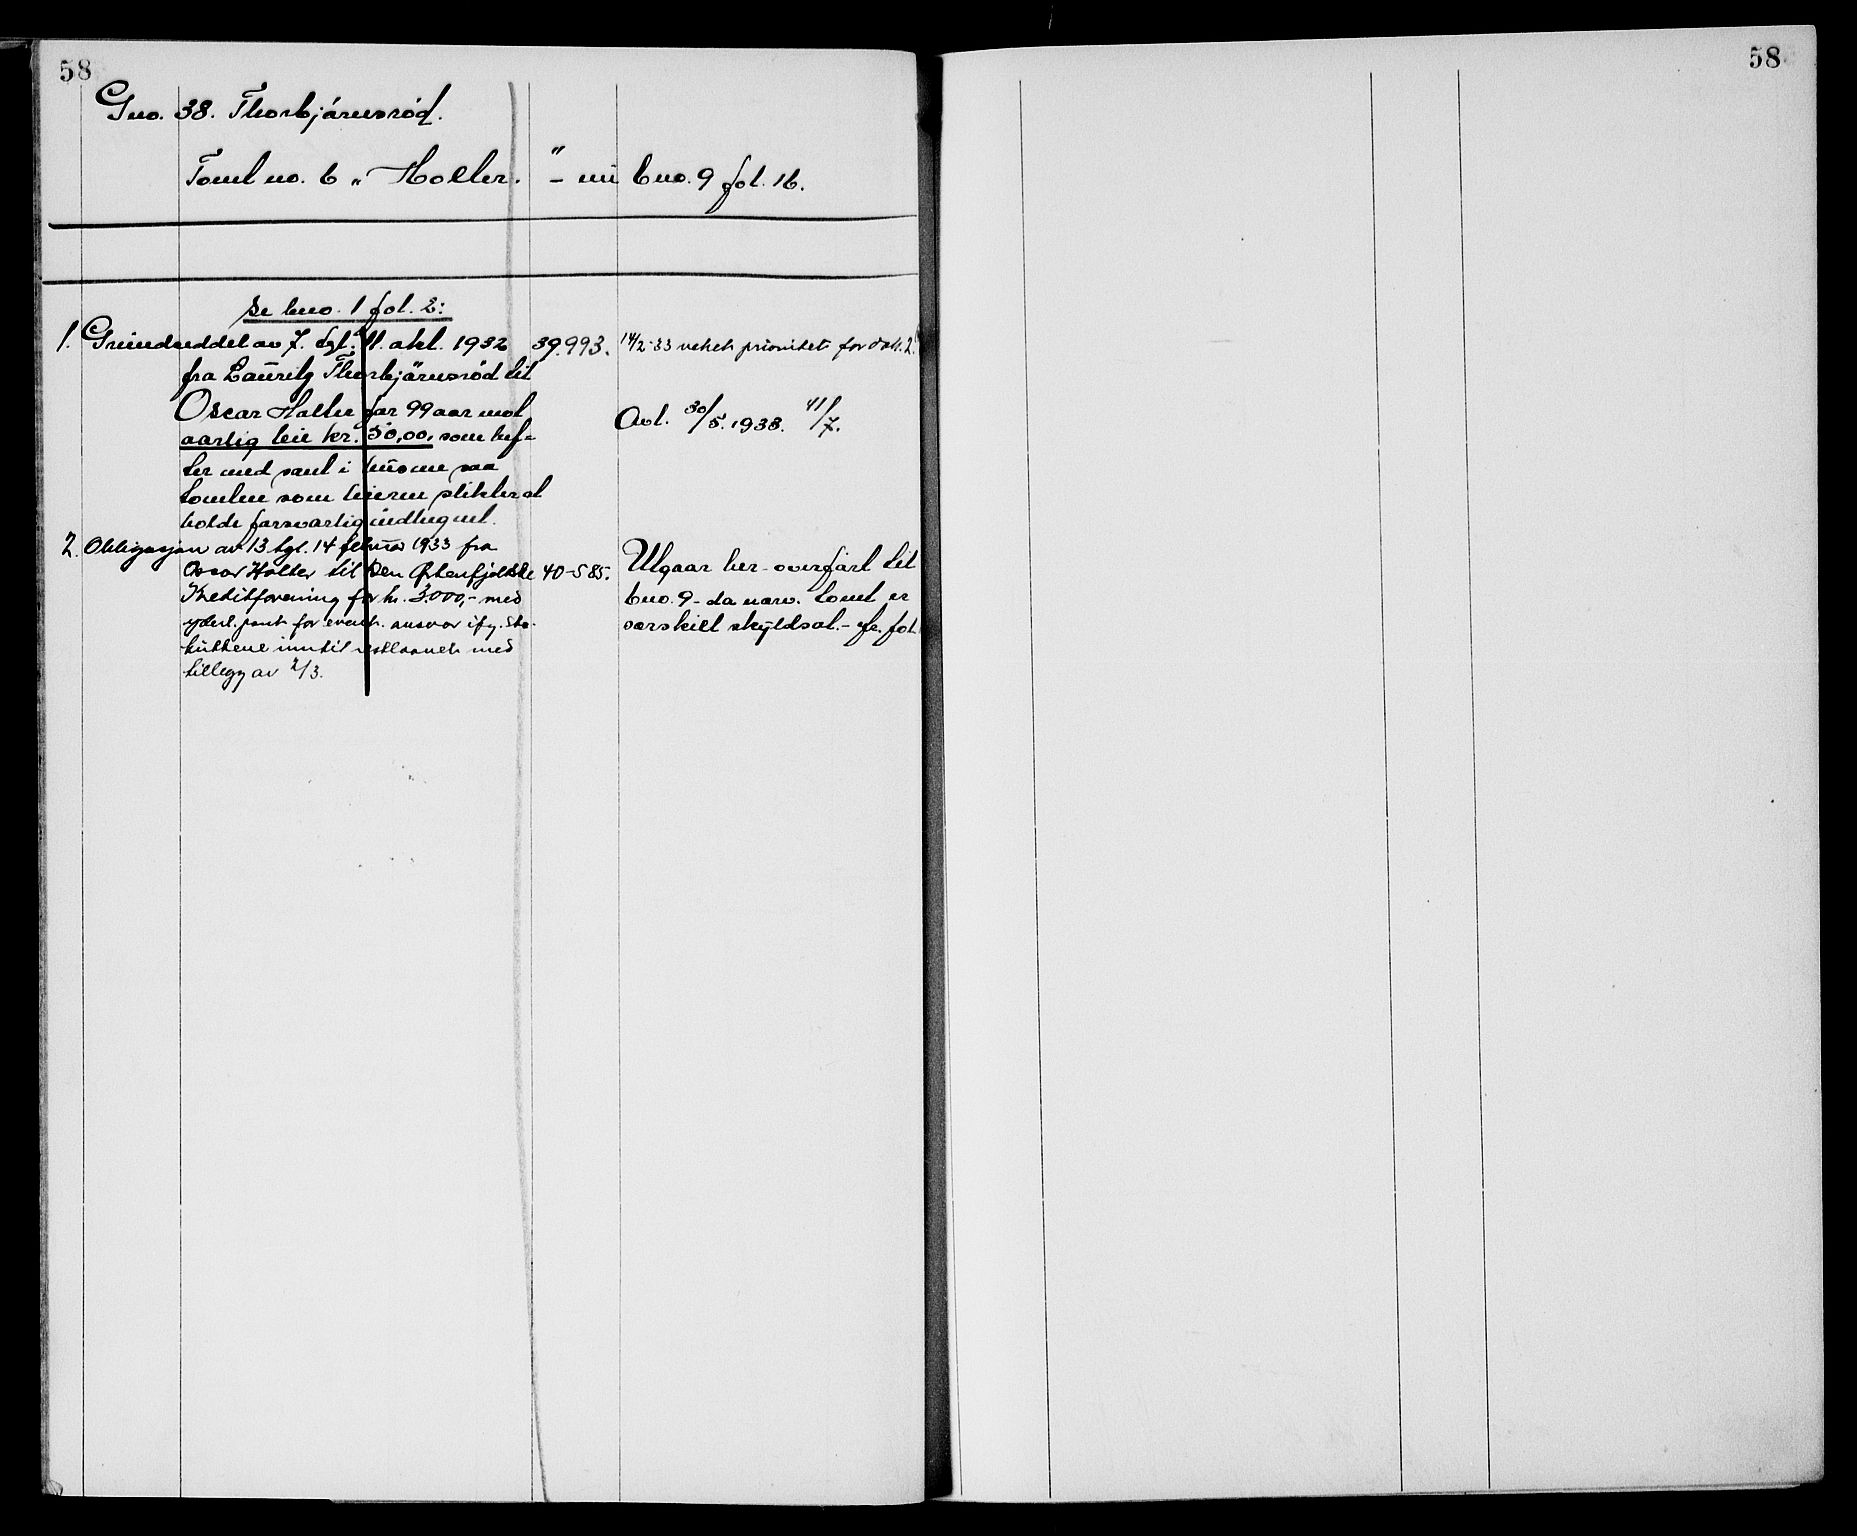 58
58
Gno. 38. Thorbjörnsröd.
Tomt no. 6 „ Holter. " – nu bno. 9 fol. 16.
Se bno. 1 fol. 2:
1. Grundseddel av 7. tgl. 11. okt. 1932 39.993. 14/2-33 veket prioritet for dok. 2.
fra Lauritz Thorbjörnsröd til
Oscar Holter for 99 aar mot
aarlig leie kr. 50,00, som hef-
Avl. 30/5. 1938. 41/7.
ter med saml i husene saa
tomten som leieren plikter at
holde forsvarlig indhegnet.
2. Obligasjon av 13 tgl. 14 februar 1933 fra
Oscar Holter til Den Østenfjeldske 40-585.
Kreditforening for kr. 3.000,- med
yderl. pant for event. ansvar ifg. sta-
tuttene inntil restlaanet med
tillegg av 2/3.
Utgaar her – overført til
bno. 9 – da nærv. tomt er
særskilt skyldsat. – jfr. fol.